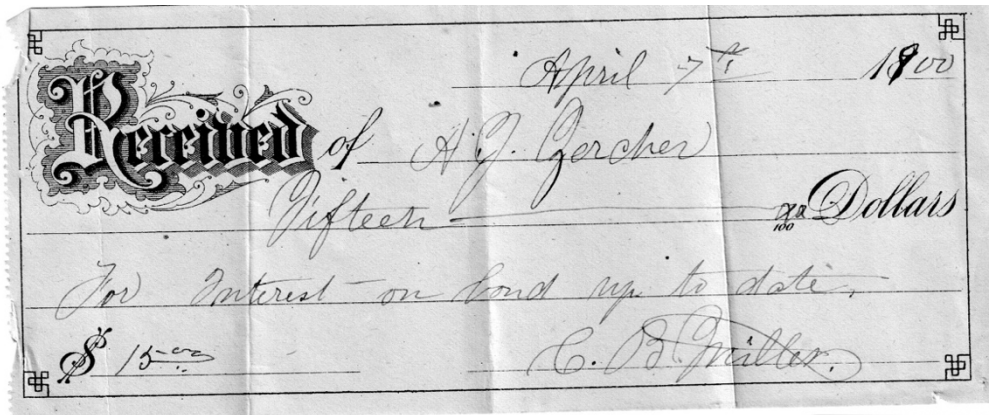 April 7th 1900
Received of A. J. Zercher
Fifteen xx/100 Dollars
For Interest on bond up to date.
$ 15.00 C. B. Miller.